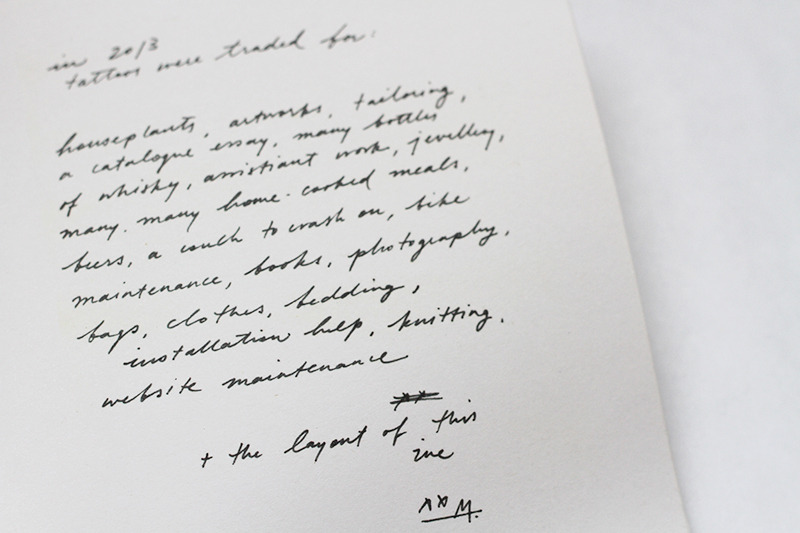 in 2013
tattoos were traded for:
houseplants, artworks, tailoring,
a catalogue essay, many bottles
of whisky, assistant work, jewellery,
many. many home-cooked meals,
beers, a couch to crash on, bike
maintenance, books, photography,
bags, clothes, bedding,
installation help, knitting,
website maintenance
+ the layout of this
ine
xx M.